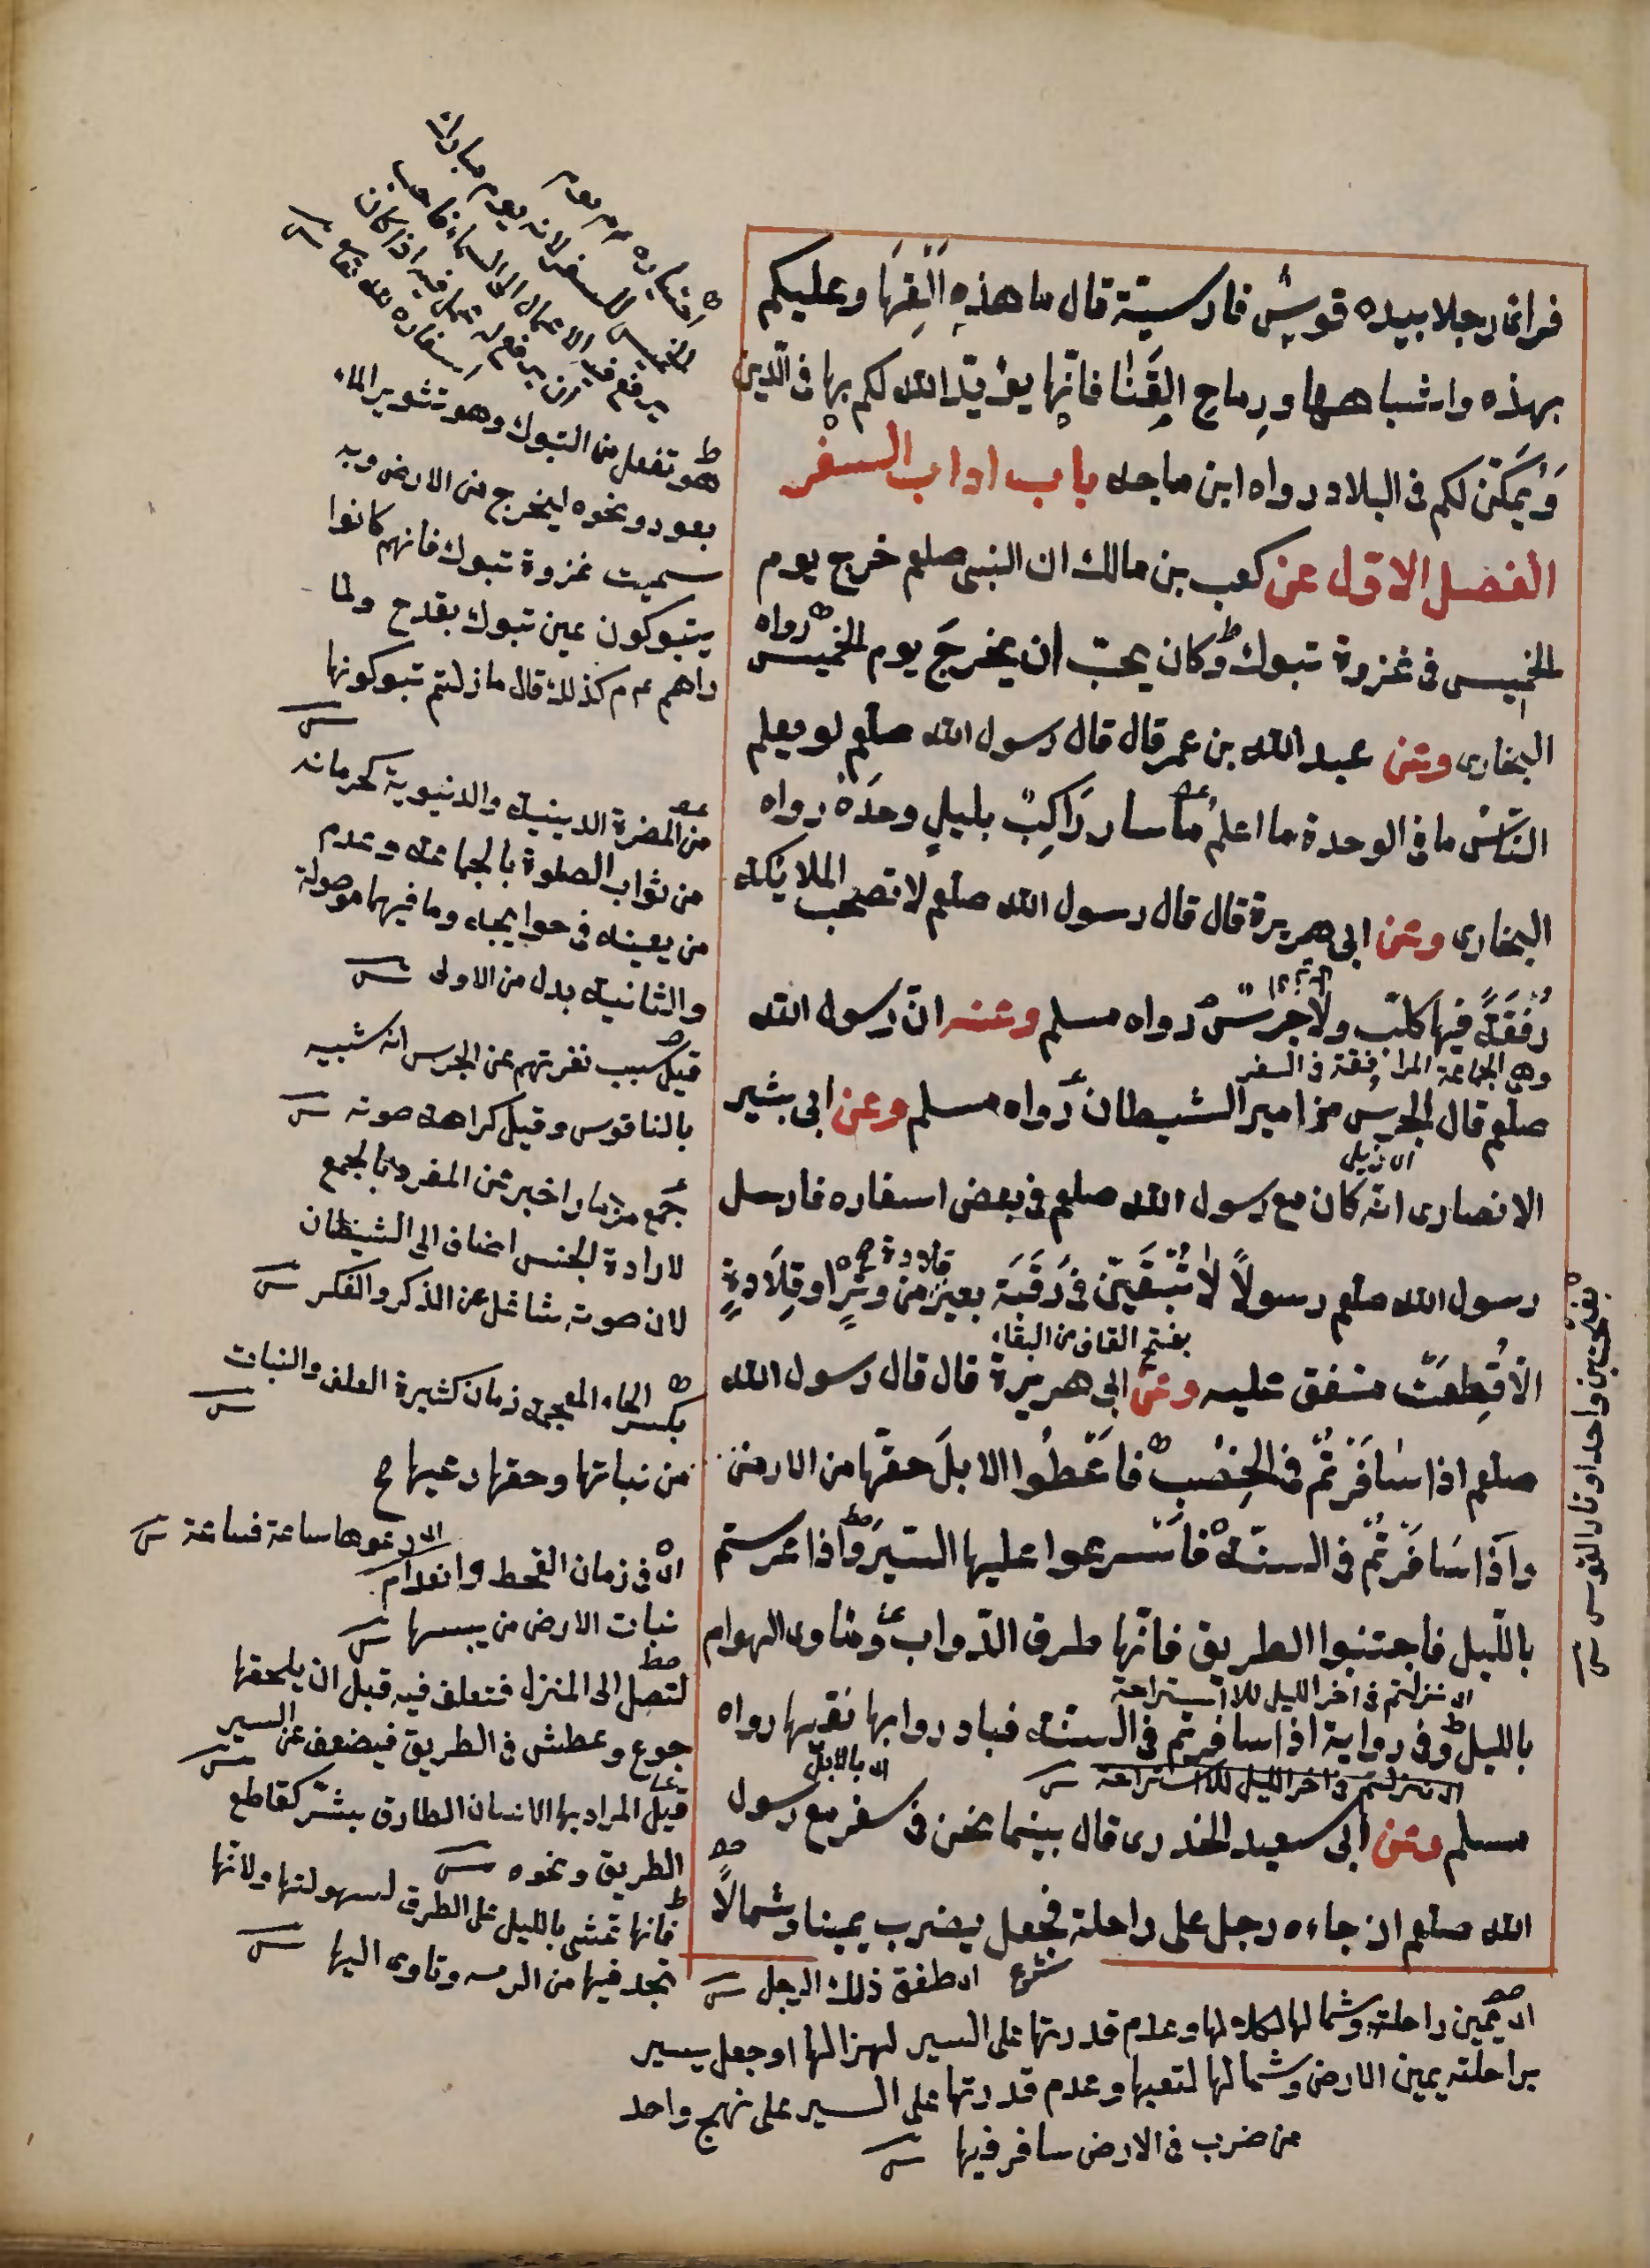 فراى رجلا بيده قوس فارسية قال ما هذه اَلْقِهَا وعليكم
بهذه واشباهها ورِماح القَنَا فانّها يؤيّد الله لكم بها فى الدّين
وَيُمَكّن لكم فى البلاد رواه ابن ماجه باب اداب السفر
الفصل الاول عن كعب بن مالك ان النبى صلعم خرج يوم
الخميس فى غزوة تبوك وكان يحبّ ان يخرجَ يوم الخميس رواه
البخارى وعن عبد الله بن عمر قال قال رسول الله صلعم لو يعلم
النّاسُ ما فى الوحدة ما اعلم ما سار رَاكِبٌ بليلٍ وحدَه رواه
البخارى وعن ابى هريرة قال قال رسول الله صلعم لا تصحب الملائكة
رُفْقَةً فيها كلبٌ ولا جرسٌ رواه مسلم وعنه انّ رسول الله
وهى الجماعة المرافقة فى السفر
صلعم قال الجرس مزامير الشيطان رواه مسلم وعن ابى بشير
الانصارى انّه كان مع رسول الله صلعم فى بعض اسفاره فارسل
رسول الله صلعم رسولاً لا تُبْقَيَنّ فى رَقَبَة بعير قلادة من وَتَرٍ او قِلَادةٍ
بفتح القاف من البقاء
الّا قُطِعَتْ متفق عليه وعن ابى هريرة قال قال رسول الله
صلعم اذا سَافَرْتُمْ فى الخِصْبِ فاَعْطُوا الابلَ حقّها من الارض
واذا سَافَرْتُمْ فى السنة فاَسْرعوا عليها السّيرَ واذا عرستم
بالليل فاجتنبوا الطريق فانّها طرق الدّواب وماوى الهوام
اى نزلتم فى اخر الليل للاستراحة
بالليل وفى رواية اذا سافرتم فى السنة فبادروا بها نقيها رواه
اى بالابل
اى نزلتم فى اخر الليل للاستراحة
مسلم وعن ابى سعيد الخدرى قال بينما نحن فى سفر مع رسول
الله صلعم اذ جاءه رجل على راحلة فجعل يضرب يمينا وشمالًا
اى طفق ذلك الرجل
اى يمين راحلته وشمالها لكلالها وعدم قدرتها على السير لهزالها او جعل يسير
براحلته يمين الارض وشمالها لتعبها وعدم قدرتها على السير على نهج واحد
من ضرب فى الارض سافر فيها
اختياره عم يوم
الخميس للسفر لانه يوم مبارك
يرفع فيه الاعمال الى السماء فاحب
ان يرفع له عمل فيه اذا كان
اسفاره لله تعا
هو تفعل من التبوك وهو تثوير الماء
بعود ونحوه ليخرج من الارض وبه
سميت غزوة تبوك فانهم كانوا
يتبوكون عين تبوك بقدح ولما
راهم عم كذلك قال ما زلتم تبوكونها
من المضرة الدينية والدنيوية كحرمانه
من ثواب الصلوة بالجماعة وعدم
من يعينه فى حوايجه وما فيهما موصولة
والثانية بدل من الاولى
قيل سبب نفرتهم عن الجرس انه شبيه
بالناقوس وقيل كراهة صوته
جمع مزمار اخبر عن المفرد بالجمع
لارادة الجنس اضاف الى الشيطان
لان صوته شاغل عن الذكر والفكر
بكسر الخاء المعجمة زمان كثيرة العلف والنبات
من نباتها وحقها رعيها
اى دعوها ساعة فساعة
اى فى زمان القحط وانعدام
نبات الارض من يبسها
لتصل الى المنزل فتعلف فيه قبل ان يلحقها
جوع وعطش فى الطريق فيضعف عن السير
قيل المراد بها الانسان الطارق بشر كقاطع
الطريق ونحوه
فانها تمشى بالليل على الطرق لسهولتها ولانها
تجد فيها من الرمه وتاوى اليها
بفتحتين واحد اوتار القوس